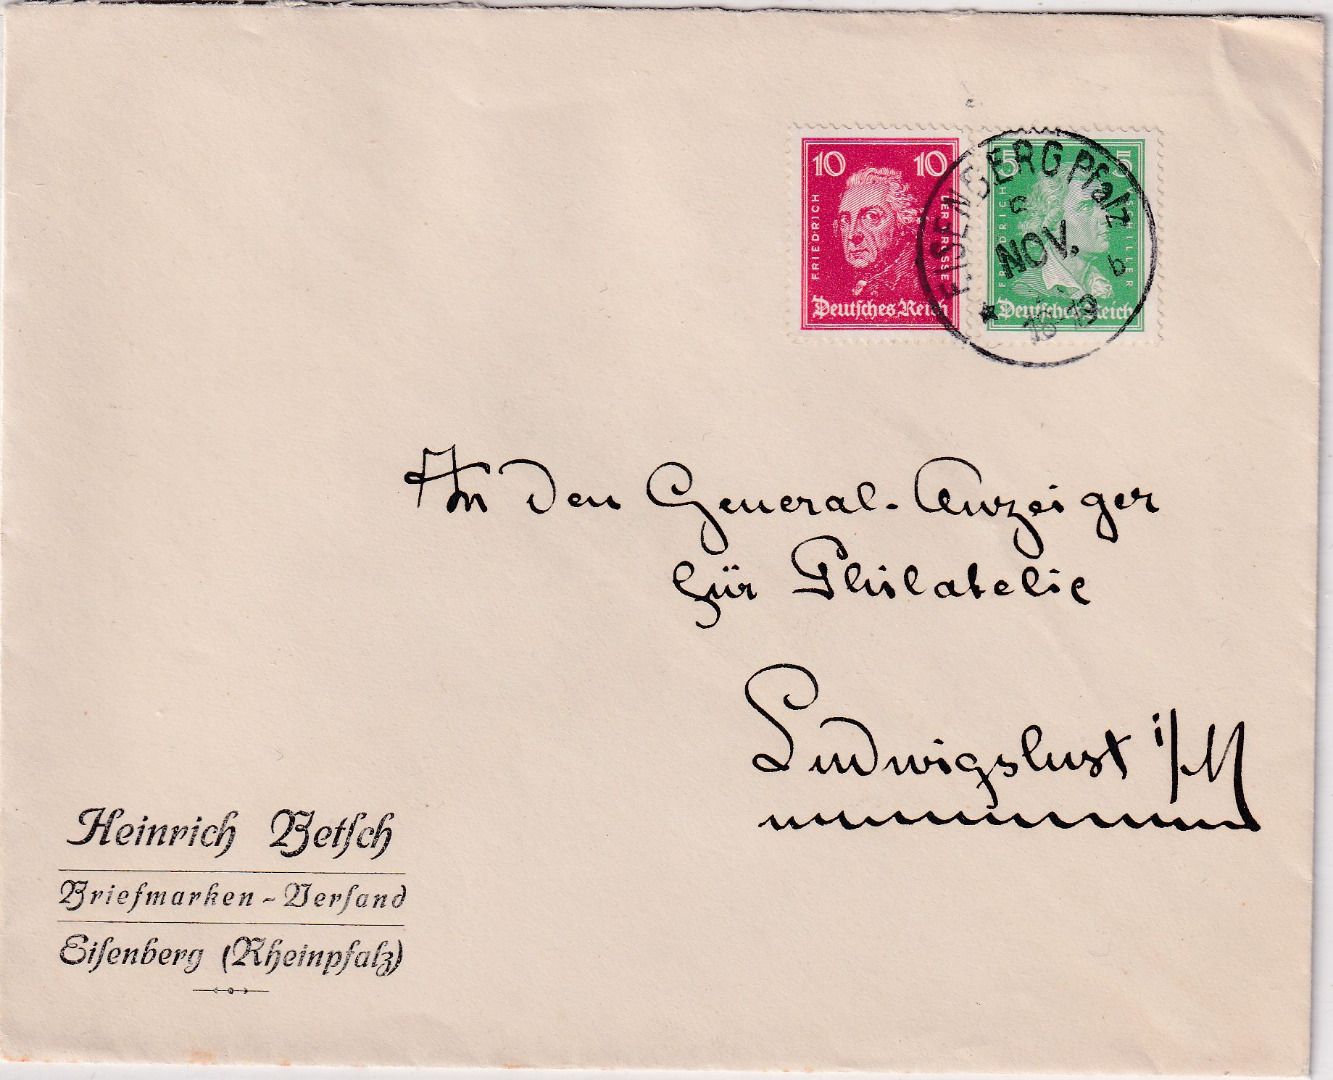 10 10
FRIEDRICH DER GROSSE
Deutsches Reich
5 5
FRIEDRICH SCHILLER
Deutsches Reich
EISENBERG Pfalz
NOV.
b
An den General-Anzeiger
für Philatelie
Ludwigslust i/M
Heinrich Betsch
Briefmarken-Versand
Eisenberg (Rheinpfalz)